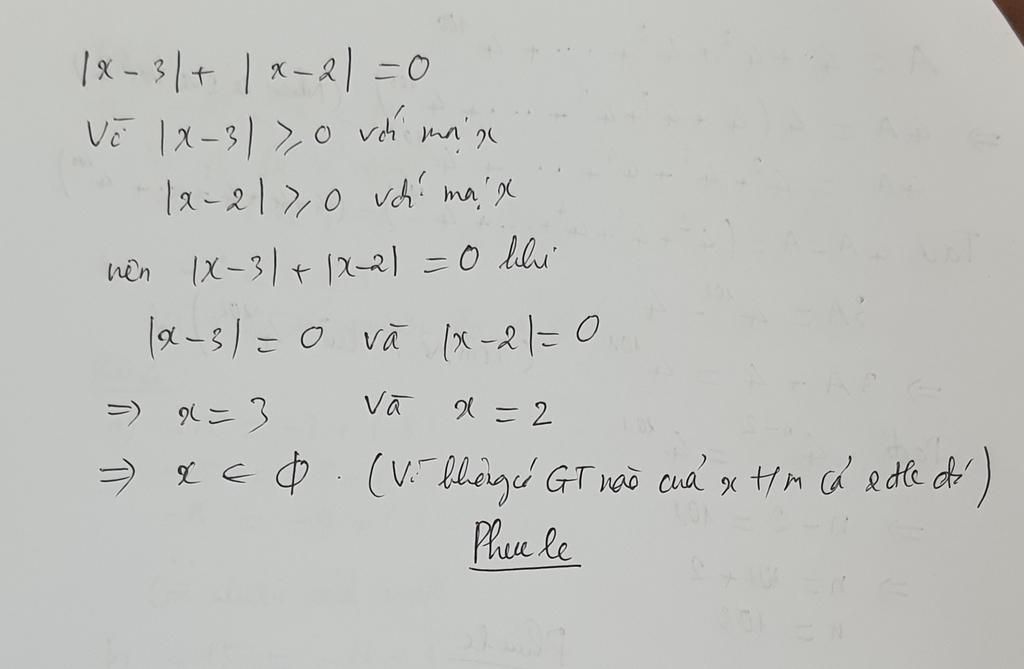 |x-3| + |x-2| = 0
Vì |x-3| ⩾ 0 với mọi x
|x-2| ⩾ 0 với mọi x
nên |x-3| + |x-2| = 0 khi
|x-3| = 0 và |x-2| = 0
⇒ x = 3 và x = 2
⇒ x ∈ ϕ. (Vì không có GT nào của x t/m cả 2 đk đó)
Phucle